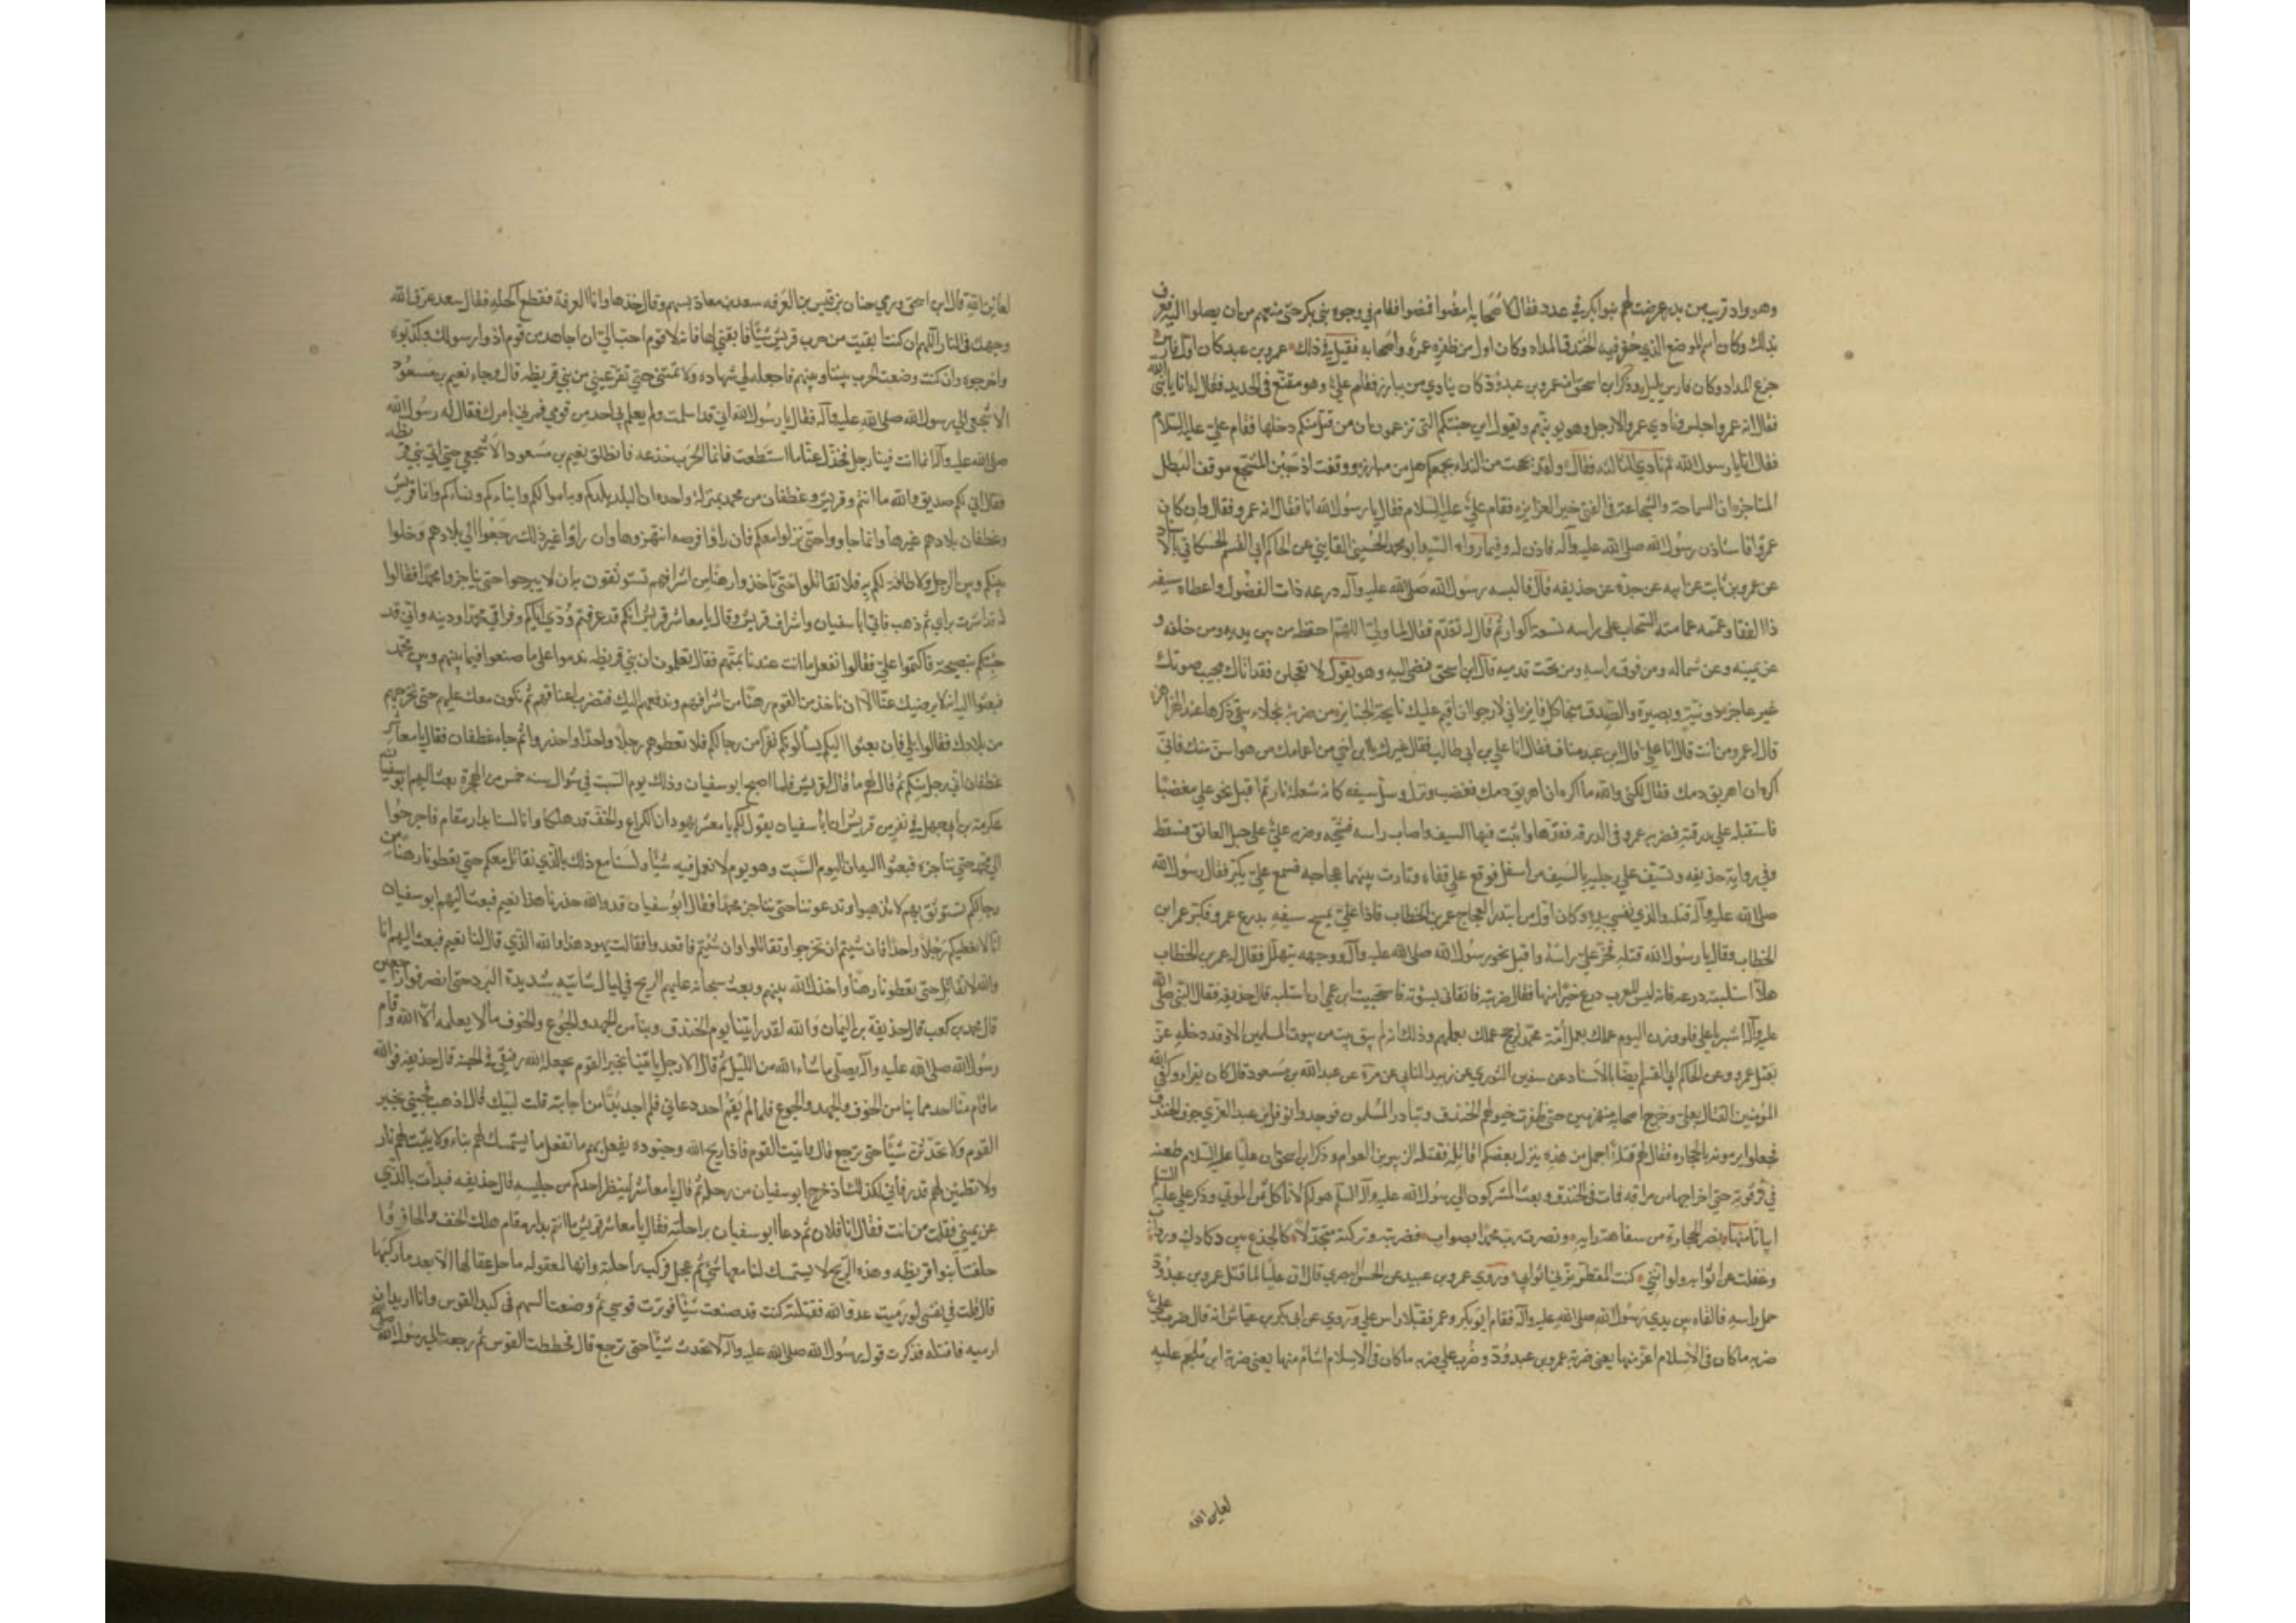 وهو واد قريب من بدر عرضت لهم بنو بكر في عدد فقال لاصحابه امضوا فمضوا فقام في وجوه بني بكر حتى منعهم من ان يصلوا اليه فعرف
بذلك وكان اسم الموضع الذي حفر فيه الخندق المداد وكان اول من طفره عمرو واصحابه فقيل في ذلك عمرو بن عبد كان اول فارس
جزع المداد وكان فارس يليل وذكر ابن اسحق ان عمرو بن عبد ود كان ينادي من يبارز فقام علي وهو مقنع في الحديد فقال له انا يا نبي الله
فقال انه عمرو اجلس ونادي عمرو الا رجل وهو يونبهم ويقول اين جنتكم التي تزعمون ان من قتل منكم دخلها فقام علي عليه السلام
فقال انا يا رسول الله ثم نادي الثالثه فقال ولقد بححت من النداء بجمعكم هل من مبارز ووقفت اذ جبن المشجع موقف البطل
المناجز ان السماحة والشجاعة في الفتي خير الغرايز فقام علي عليه السلام فقال يا رسول الله انا فقال انه عمرو فقال وان كان
عمرو فاستاذن رسول الله صلى الله عليه وآله فاذن له وفيما رواه السيد ابو محمد الحسيني القايني عن الحاكم ابي القسم الحسكاني بالاسناد
عن عمرو بن ثابت عن ابيه عن جده عن حذيفه قال فالبسه رسول الله صلى الله عليه وآله درعه ذات الفضول واعطاه سيفه
ذا الفقار وعممه عمامته السحاب على راسه تسعة اكوار ثم قال له تقدم فقال لما ولى اللهم احفظه من بين يديه ومن خلفه و
عن يمينه وعن شماله ومن فوق راسه ومن تحت قدميه قال ابن اسحق فمضى اليه وهو يقول لا تعجلن فقد اتاك مجيب صوتك
غير عاجز ذو نية وبصيرة والصدق منجا كل فايز اني لارجو ان اقيم عليك نايحة الجنايز من ضربة نجلاء يبقى ذكرها عند الهزاهز
قال له عمرو من انت قال انا علي قال ابن عبد مناف فقال انا علي بن ابي طالب فقال غيرك يا ابن اخي من اعمامك من هو اسن منك فاني
اكره ان اهريق دمك فقال لكني والله ما اكره ان اهريق دمك فغضب ونزل وسل سيفه كانه شعلة نار ثم اقبل نحو علي مغضبا
فاستقبله علي بدرقته فضربه عمرو في الدرقه فقدها واثبت فيها السيف واصاب راسه فشجه وضربه علي على حبل العاتق فسقط
وفي رواية حذيفه وتسيف علي رجليه بالسيف من اسفل فوقع على قفاه وثارت بينهما عجاجه فسمع علي يكبر فقال رسول الله
صلى الله عليه وآله قتله والذي نفسي بيده وكان اول من ابتدر العجاج عمر بن الخطاب فاذا علي يمسح سيفه بدرع عمرو فكبر عمر ابن
الخطاب وقال يا رسول الله قتله فحز علي راسه واقبل نحو رسول الله صلى الله عليه وآله ووجهه يتهلل فقال له عمر بن الخطاب
هلا استلبته درعه فانه ليس للعرب درع خير منها فقال ضربته فاتقاني بسوءته فاستحييت ابن عمي ان استلبه قال حذيفه فقال النبي صلى الله
عليه وآله ابشر يا علي فلو وزن اليوم عملك بعمل امة محمد لرجح عملك بعملهم وذلك انه لم يبق بيت من بيوت المسلمين الا وقد دخله عز
بقتل عمرو وعن الحاكم ابي القسم ايضا بالاسناد عن سفين الثوري عن زبيد اليامي عن مرة عن عبد الله بن مسعود قال كان يقراء وكفى الله
المؤمنين القتال بعلي وخرج اصحابه منهزمين حتى طفرت خيولهم الخندق وتبادر المسلمون فوجدوا نوفل بن عبد العزي جوف الخندق
فجعلوا يرمونه بالحجاره فقال لهم قتلة اجمل من هذه ينزل بعضكم اقاتله فقتله الزبير بن العوام وذكر ابن اسحق ان عليا عليه السلام طعنه
في ترقوته حتى اخرجها من مراقه فمات في الخندق وبعث المشركون الي رسول الله عليه وآله السلم هو لكم لا ناكل ثمن الموتي وذكر علي عليه السلم
ابياتا منها نصر الحجارة من سفاهة رايه ونصرت رب محمد بصواب فضربته وتركته متجدلا كالجذع بين دكادك ورواب
وعففت عن اثوابه ولو انني كنت المقطر بزني اثوابي وروي عمرو بن عبيد عن الحسن البصري قال ان عليا لما قتل عمرو بن عبد ود
حمل راسه فالقاه بين يدي رسول الله صلى الله عليه وآله فقام ابو بكر وعمر فقبلا راس علي وروي عن ابي بكر بن عياش انه قال ضرب علي
ضربه ما كان في الاسلام اعز منها يعني ضربة عمرو بن عبد ود وضرب علي ضربه ما كان في الاسلام اشام منها يعني ضربة ابن ملجم عليه
لعاين الله
لعاين الله قال ابن اسحق ورمي حنان بن قيس بن العرفه سعد بن معاذ بسهم وقال خذها وانا ابن العرفة فقطع اكحله فقال سعد عرق الله
وجهك في النار اللهم ان كنت ابقيت من حرب قريش شيئا فابقني لها فانه لا قوم احب الي ان اجاهد من قوم اذوا رسولك وكذبوه
واخرجوه وان كنت وضعت الحرب بيننا وبينهم فاجعله لي شهاده ولا تمتني حتي تقر عيني من بني قريظه قال وجاء نعيم بن مسعود
الاشجعي الي رسول الله صلى الله عليه وآله فقال يا رسول الله اني قد اسلمت ولم يعلم بي احد من قومي فمرني بامرك فقال له رسول الله
صلى الله عليه وآله انما انت فينا رجل فخذل عنا ما استطعت فانما الحرب خدعه فانطلق نعيم بن مسعود الاشجعي حتي اتي بني قريظه
فقال اني لكم صديق والله ما انتم وقريش وغطفان من محمد بمنزلة واحده ان البلد بلدكم وبه اموالكم وابناءكم ونساءكم وانما قريش
وغطفان بلادهم غيرها وانما جاووا حتى نزلوا معكم فان راوا فرصه انتهزوها وان راوا غير ذلك رجعوا الي بلادهم وخلوا
بينكم وبين الرجل ولا طاقة لكم به فلا تقاتلوا حتى تاخذوا رهنا من اشرافهم تستوثقون به ان لا يبرحوا حتى يناجزوا محمدا فقالوا
له قد اشرت براي ثم ذهب فاتي ابا سفيان واشراف قريش وقال يا معاشر قريش انكم قد عرفتم ودي اياكم وفراقي محمدا ودينه واني قد
جئتكم بنصيحة فاكتموا علي فقالوا نفعل ما انت عندنا بمتهم فقال تعلمون ان بني قريظه ندموا علي ما صنعوا فيما بينهم وبين محمد
فبعثوا اليه انه لا يرضيك عنا الا ان ناخذ من القوم رهنا من اشرافهم وندفعهم اليك فتضرب اعناقهم ثم نكون معك عليهم حتى نخرجهم
من بلادك فقالوا بلي فان بعثوا اليكم يسألونكم نفرا من رجالكم فلا تعطوهم رجلا واحدا واحذروا ثم جاء غطفان فقال يا معاشر
غطفان اني رجل منكم ثم قال لهم ما قال لقريش فلما اصبح ابو سفيان وذلك يوم السبت في شوال سنه خمس من الهجرة بعث اليهم ابو سفيان
عكرمة بن ابي جهل في نفر من قريش ان ابا سفيان يقول لكم يا معشر يهود ان الكراع والخف قد هلكا وانا لسنا بدار مقام فاخرجوا
الي محمد حتي نناجزه فبعثوا اليه ان اليوم السبت وهو يوم لا نعمل فيه شيئا ولسنا مع ذلك بالذي نقاتل معكم حتى تعطونا رهنا من
رجالكم نستوثق بهم لا تذهبوا وتدعوننا حتى نناجز محمدا فقال ابو سفيان قد والله حذرنا هذا نعيم فبعث اليهم ابو سفيان
انا لا نعطيكم رجلا واحدا فان شيتم ان تخرجوا وتقاتلوا وان شيتم فاقعدوا فقالت يهود هذا والله الذي قال لنا نعيم فبعث اليهم انا
والله لا نقاتل حتى تعطونا رهنا وخذل الله بينهم وبعث سبحانه عليهم الريح في ليال شاتيه شديدة البرد حتى انصرفوا راجعين
قال محمد بن كعب قال حذيفة بن اليمان والله لقد رايتنا يوم الخندق وبنا من الجهد والجوع والخوف ما لا يعلمه الا الله وقام
رسول الله صلى الله عليه وآله يصلي ما شاء الله من الليل ثم قال الا رجل ياتينا بخبر القوم يجعله الله رفيقي في الجنه قال حذيفه فوالله
ما قام منا احد مما بنا من الخوف والجهد والجوع فلما لم يقم احد دعاني فلم اجد بدا من اجابته قلت لبيك قال اذهب فجئني بخبر
القوم ولا تحدثن شيئا حتى ترجع قال واتيت القوم فاذا ريح الله وجنوده يفعل بهم ما تفعل ما يستمسك لهم بناء ولا يثبت لهم نار
ولا تطمئن لهم قدر فاني لكذلك اذ خرج ابو سفيان من رحله ثم قال يا معاشر لينظر احدكم من جليسه قال حذيفه فبدأت بالذي
عن يميني فقلت من انت فقال انا فلان ثم دعا ابو سفيان براحلته فقال يا معاشر قريش ما انتم بدار مقام هلك الخف والحافر وا
خلفتنا بنوا قريظه وهذه الريح لا يستمسك لنا معها شئ ثم عجل فركب راحلته وانها لمعقوله ما حل عقالها الا بعد ما ركبها
قال قلت في نفسي لو رميت عدو الله فقتلته كنت قد صنعت شيئا فوترت قوسي ثم وضعت السهم في كبد القوس وانا اريد ان
ارميه فاقتله فذكرت قول رسول الله صلى الله عليه وآله لا تحدث شيئا حتى ترجع قال فحططت القوس ثم رجعت الي رسول الله صلى